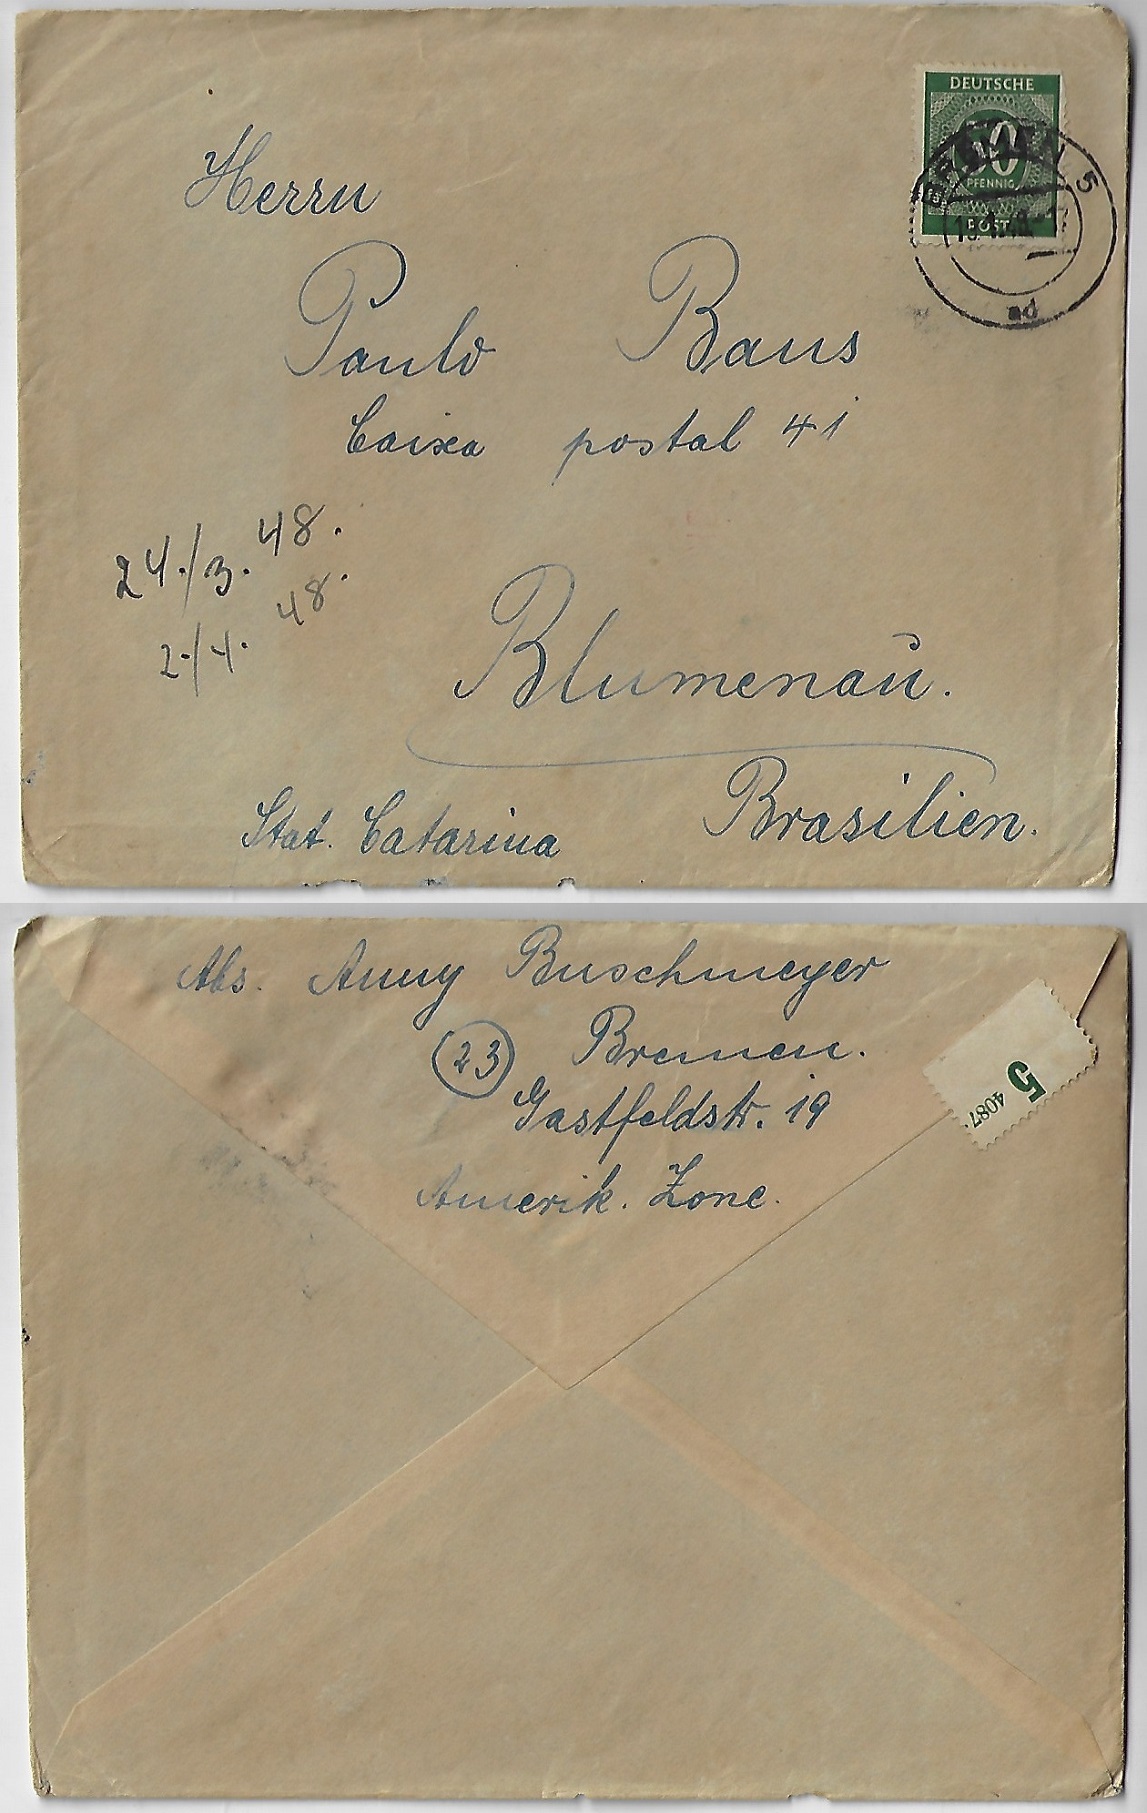 DEUTSCHE
50
PFENNIG
POST
BREMEN 5
ad
Herrn
Paulo Baus
Caixa postal 41
24./3. 48.
2./4. 48.
Blumenau.
Stat. Catarina
Brasilien.
Abs. Anny Buschmeyer
23 Bremen.
Gastfeldstr. 19
Amerik. Zone.
5
4087.